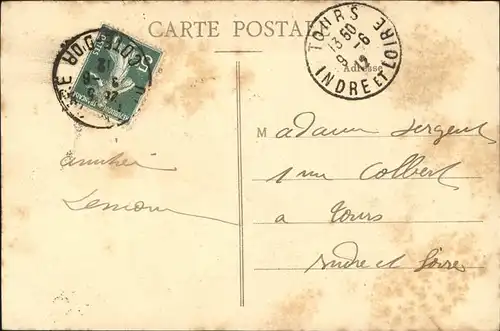 CARTE POSTALE
TOURS
13 50
9 - 6
12
INDRE ET LOIRE
COTE D'OR
Adresse
Madame Sergent
1 rue Colbert
a Tours
Indre et Loire
amitié